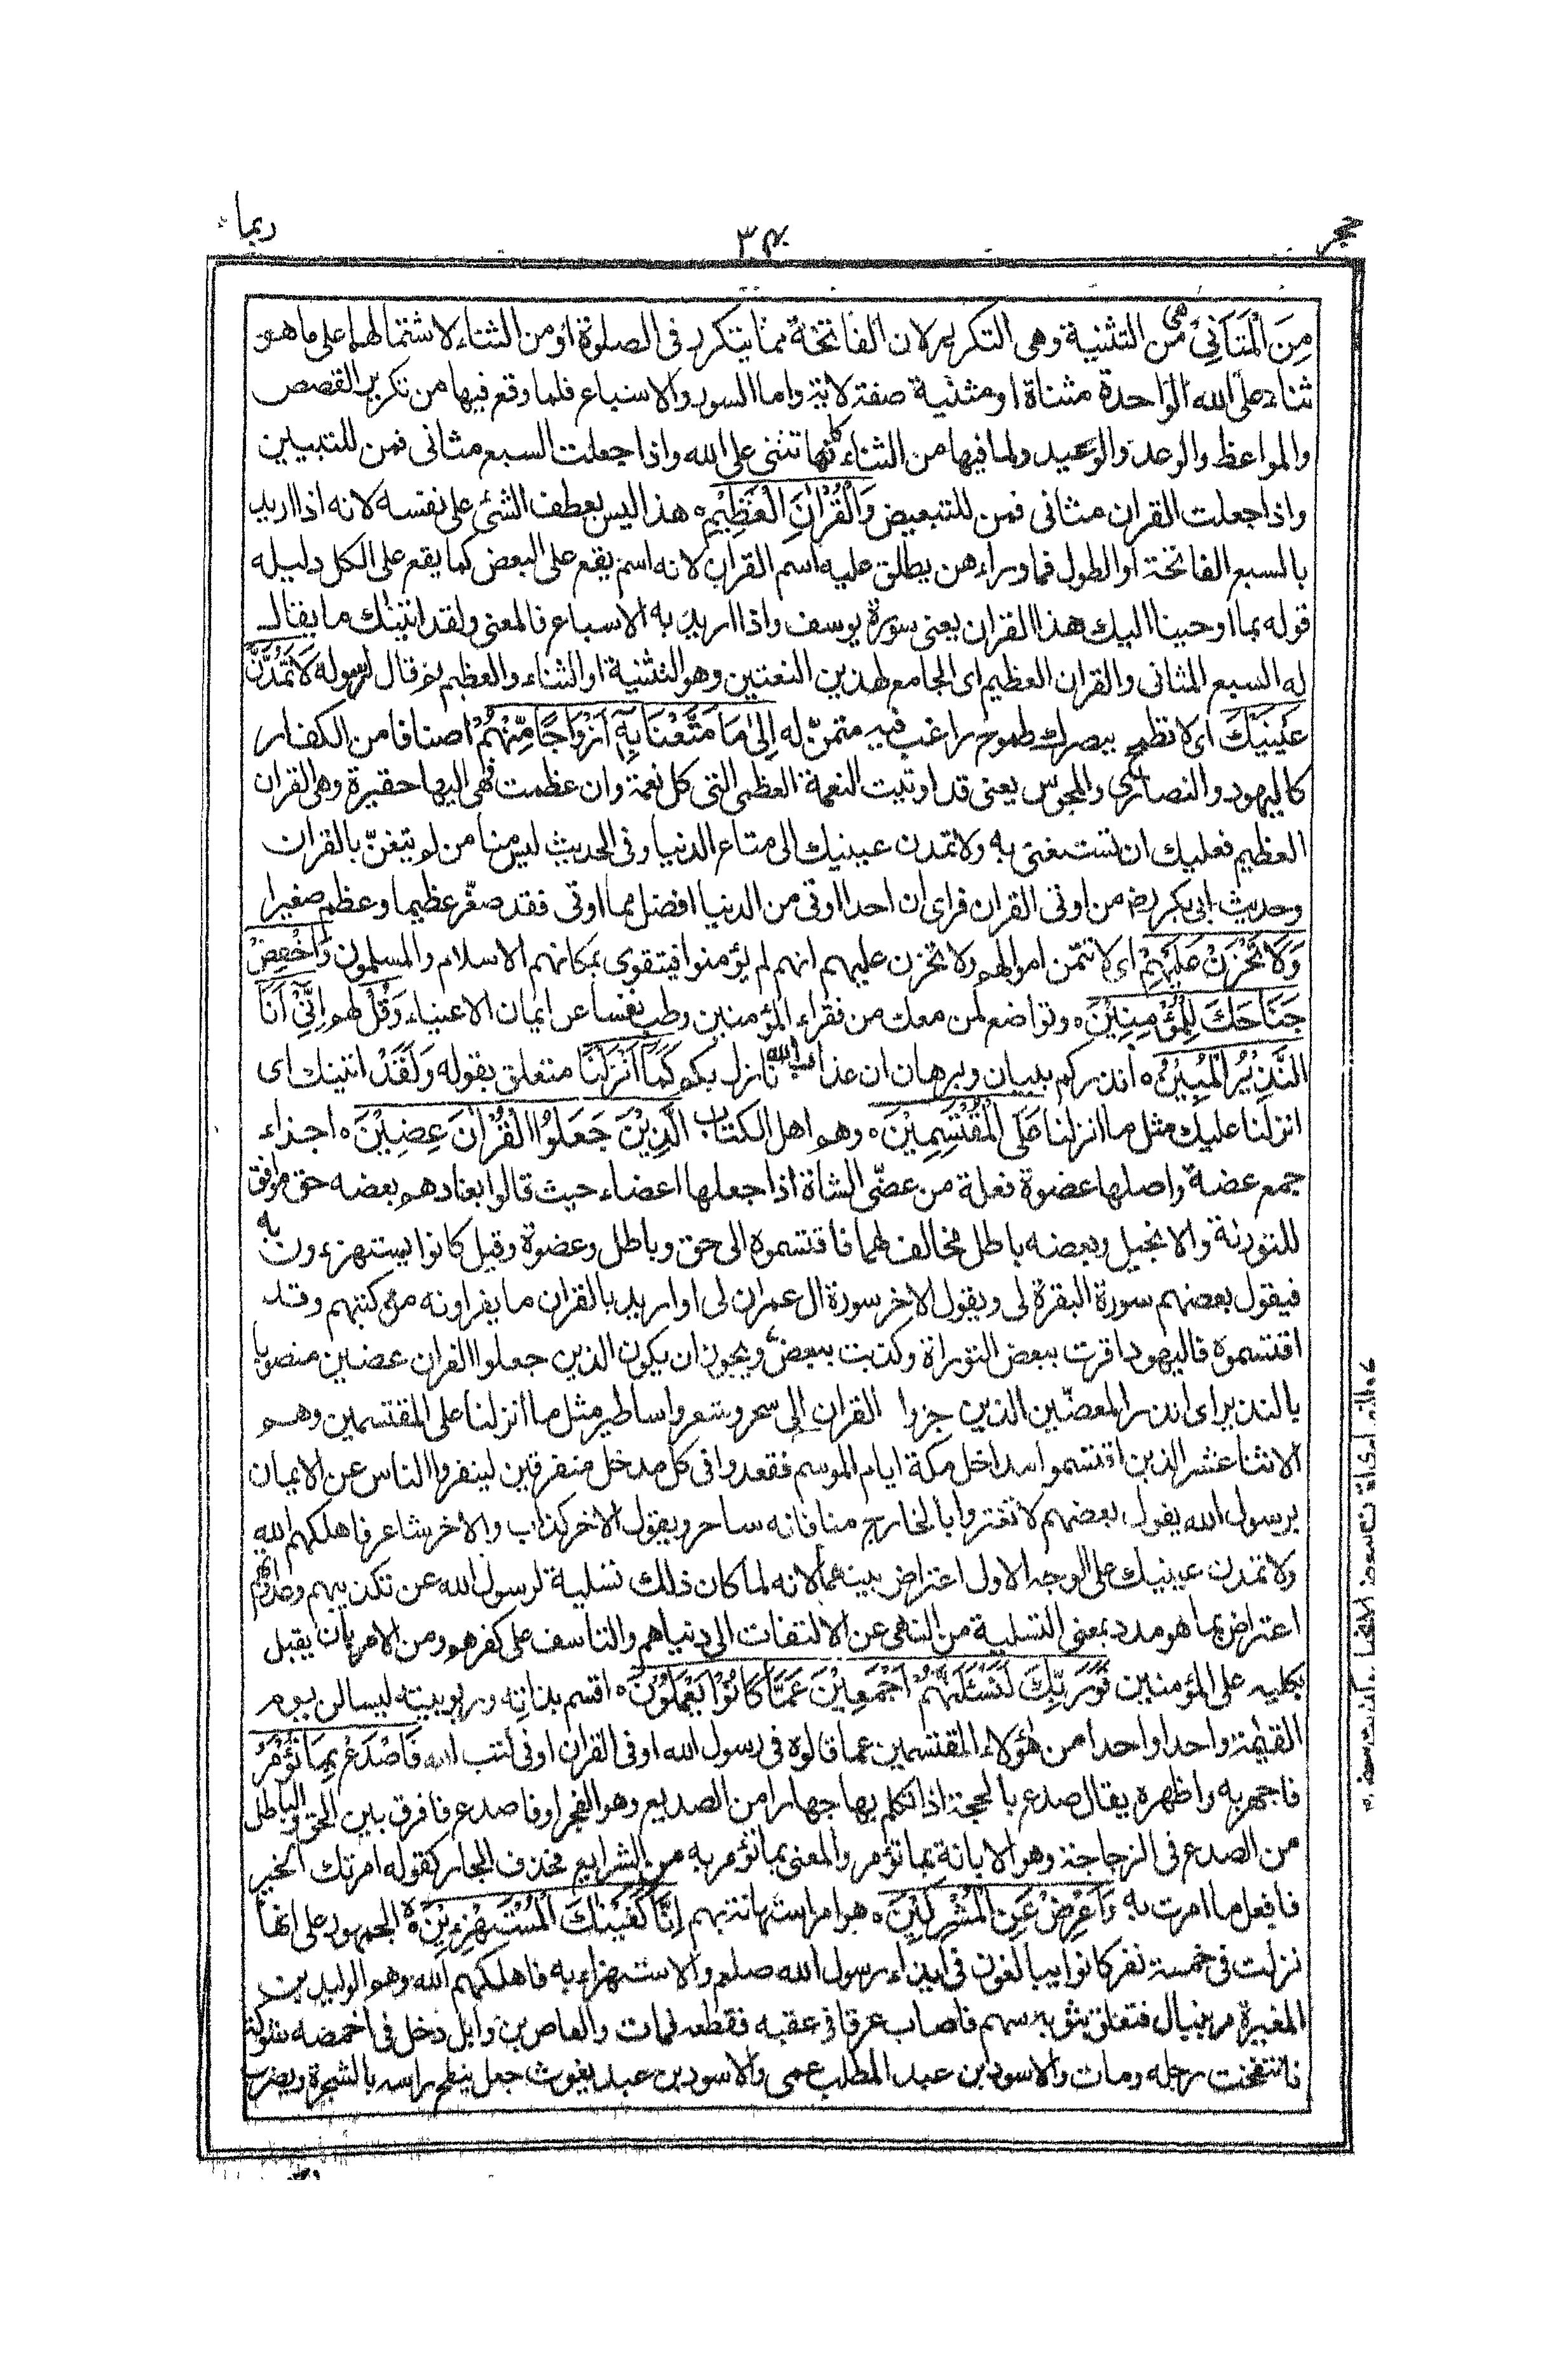 حجر
٣٤
ربما
مِنَ الْمَثَانِىْ هى من التثنية وهى التكرير لان الفاتحة مما يتكرر فى الصلوة او من الثناء لاشتمالها على ما هو
ثناء على الله الواحدة مثناة او مثنية صفة لاية واما السور والاسباع فلما وقع فيها من تكرير القصص
والمواعظ والوعد والوعيد ولما فيها من الثناء كانها تثنى على الله واذا جعلت السبع مثانى فمن للتبيين
واذا جعلت القران مثانى فمن للتبعيض وَالْقُرْاٰنَ الْعَظِيْمَ ه هذا ليس بعطف الشئ على نفسه لانه اذا اريد
بالسبع الفاتحة او الطول فما وراءهن يطلق عليه اسم القران لانه اسم يقع على البعض كما يقع على الكل دليله
قوله بما اوحينا اليك هذا القران يعنى سورة يوسف واذا اريد به الاسباع فالمعنى ولقد اتينٰك ما يقال
له السبع المثانى والقران العظيم اى الجامع لهذين النعتين وهو التثنية او الثناء والعظم ثم قال لرسوله لَا تَمُدَّنَّ
عَيْنَيْكَ اى لا تطمح ببصرك طموح راغب فيه متمن له اِلىٰ مَا مَتَّعْنَا بِهٖ اَزْوَاجًا مِّنْهُمْ اصنافا من الكفار
كاليهود والنصارى والمجوس يعنى قد اوتيت النعمة العظمى التى كل نعمة وان عظمت فهى اليها حقيرة وهى القران
العظيم فعليك ان تستغنى به ولا تمدن عينيك الى متاع الدنيا وفى الحديث ليس منا من لم يتغنّ بالقران
وحديث ابى بكر رض من اوتى القران فراى ان احدا اوتى من الدنيا افضل مما اوتى فقد صغّر عظيما وعظم صغيرا
وَلَا تَحْزَنْ عَلَيْهِمْ اى لا تتمن اموالهم ولا تحزن عليهم انهم لم يؤمنوا فيتقوى بمكانهم الاسلام والمسلمون وَاخْفِضْ
جَنَاحَكَ لِلْمُؤْمِنِيْنَ ه وتواضع لمن معك من فقراء المؤمنين وطب نفسا عن ايمان الاغنياء وَقُلْ لهم اِنِّىْ اَنَا
النَّذِيْرُ الْمُبِيْنُ ه انذركم ببيان وبرهان ان عذاب الله نازل بكم كَمَا اَنْزَلْنَا متعلق بقوله وَلَقَدْ اتينٰك اى
انزلنا عليك مثل ما انزلنا عَلَى الْمُقْتَسِمِيْنَ ه وهم اهل الكتاب الَّذِيْنَ جَعَلُوا الْقُرْاٰنَ عِضِيْنَ ه اجزاء
جمع عضة واصلها عضوة فعلة من عضّى الشاة اذا جعلها اعضاء حيث قالوا بعنادهم بعضه حق موافق
للتورٰىة والانجيل وبعضه باطل مخالف لهما فاقتسموه الى حق وباطل وعضوه وقيل كانوا يستهزءون به
فيقول بعضهم سورة البقرة لى ويقول الاخر سورة ال عمران لى او اريد بالقران ما يقراونه من كتبهم وقد
اقتسموه فاليهود اقرت ببعض التوراة وكذبت ببعض ويجوز ان يكون الذين جعلوا القران عضين منصوبا
بالنذير اى انذر المعضّين الذين جزوا القران الى سحر وشعر واساطير مثل ما انزلنا على المقتسمين وهم
الاثنا عشر الذين اقتسموا مداخل مكة ايام الموسم فقعدوا فى كل مدخل متفرقين لينفروا الناس عن الايمان
برسول الله يقول بعضهم لا تغتروا بالخارج منا فانه ساحر ويقول الاخر كذاب والاخر شاعر فاهلكهم الله
ولا تمدن عينيك على الوجه الاول اعتراض بينهما لانه لما كان ذلك تسلية لرسول الله عن تكذيبهم وعداوتهم
اعتراض بما هو مدد بمعنى التسلية من النهى عن الالتفات الى دنياهم والتاسف على كفرهم ومن الامر بان يقبل
بكليه على المؤمنين فَوَرَبِّكَ لَنَسْئَلَنَّهُمْ اَجْمَعِيْنَ عَمَّا كَانُوْا يَعْمَلُوْنَ ه اقسم بذاته وربوبيته ليسالن يوم
القيٰمة واحدا واحدا من هٰؤلاء المقتسمين عما قالوه فى رسول الله او فى القران او فى كتب الله فَاصْدَعْ بِمَا تُؤْمَرُ
فاجهر به واظهره يقال صدع بالحجة اذا تكلم بها جهارا من الصديع وهو الفجر او فاصدع فافرق بين الحق والباطل
من الصدع فى الزجاجة وهو الابانة بما تؤمر والمعنى بما تؤمر به من الشرايع فحذف الجار كقوله امرتك الخير
فافعل ما امرت به وَاَعْرِضْ عَنِ الْمُشْرِكِيْنَ ه هو امر استهانة بهم اِنَّا كَفَيْنٰكَ الْمُسْتَهْزِءِيْنَ ه الجمهور على انها
نزلت فى خمسة نفر كانوا يبالغون فى ايذاء رسول الله صلعم والاستهزاء به فاهلكهم الله وهم الوليد بن
المغيرة مر بنبال فتعلق بثوبه سهم فاصاب عرقا فى عقبه فقطعه فمات والعاص بن وايل دخل فى اخمصه شوكة
فانتفخت رجله ومات والاسود بن عبد المطلب عمى والاسود بن عبد يغوث جعل ينطح راسه بالشجرة ويضرب